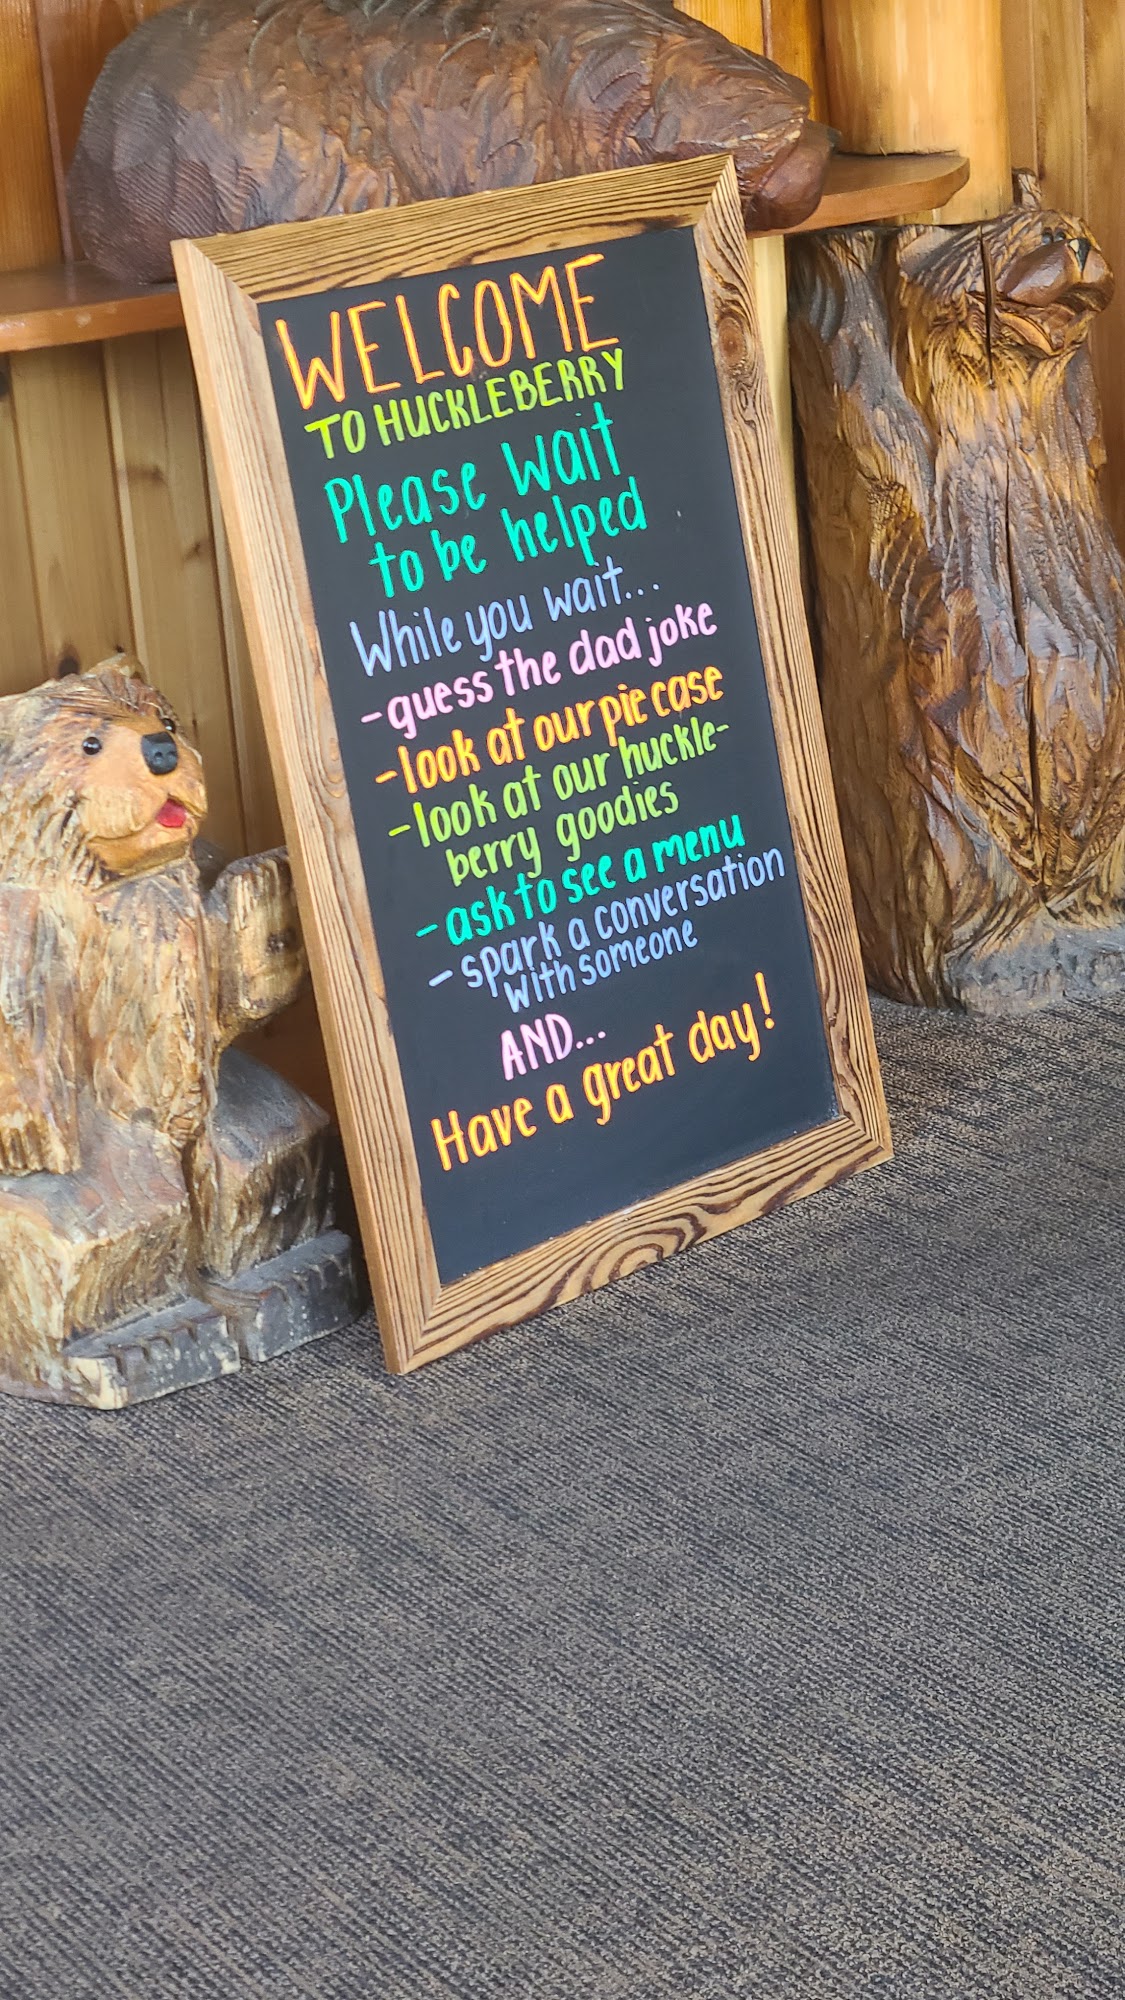 WELCOME
TO HUCKLEBERRY
Please wait
to be helped
While you wait...
-guess the dad joke
-look at our pie case
-look at our huckle-
berry goodies
-ask to see a menu
-spark a conversation
with someone
AND...
Have a great day!